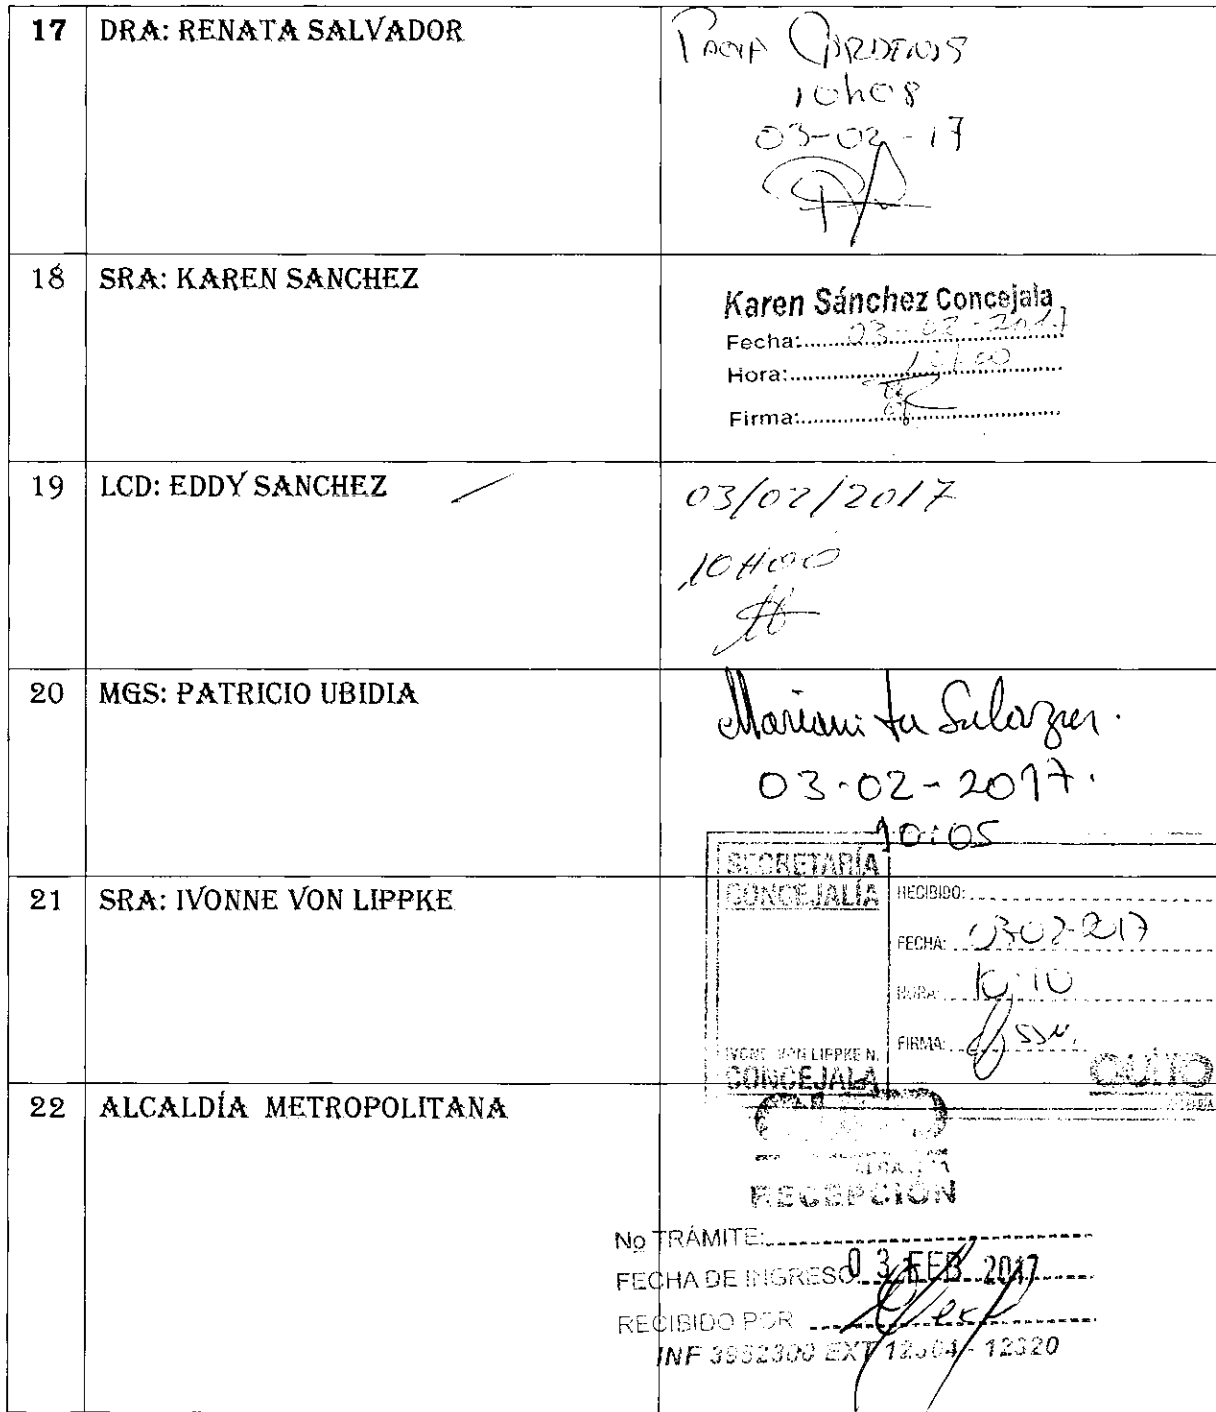 17 DRA: RENATA SALVADOR
10h08
03-02-17
18 SRA: KAREN SANCHEZ
Karen Sánchez Concejala
Fecha: 03-02-2017
Hora: 10h00
Firma:
19 LCD: EDDY SANCHEZ
03/02/2017
10H00
20 MGS: PATRICIO UBIDIA
Marianita Salazar.
03-02-2017.
10:05
21 SRA: IVONNE VON LIPPKE
SECRETARÍA
CONCEJALÍA
RECIBIDO:
FECHA: 03-02-2017
HORA: 10:10
FIRMA:
IVONE VON LIPPKE N.
CONCEJALA
QUITO
22 ALCALDÍA METROPOLITANA
RECEPCIÓN
No TRÁMITE:
FECHA DE INGRESO: 03 FEB 2017
RECIBIDO POR